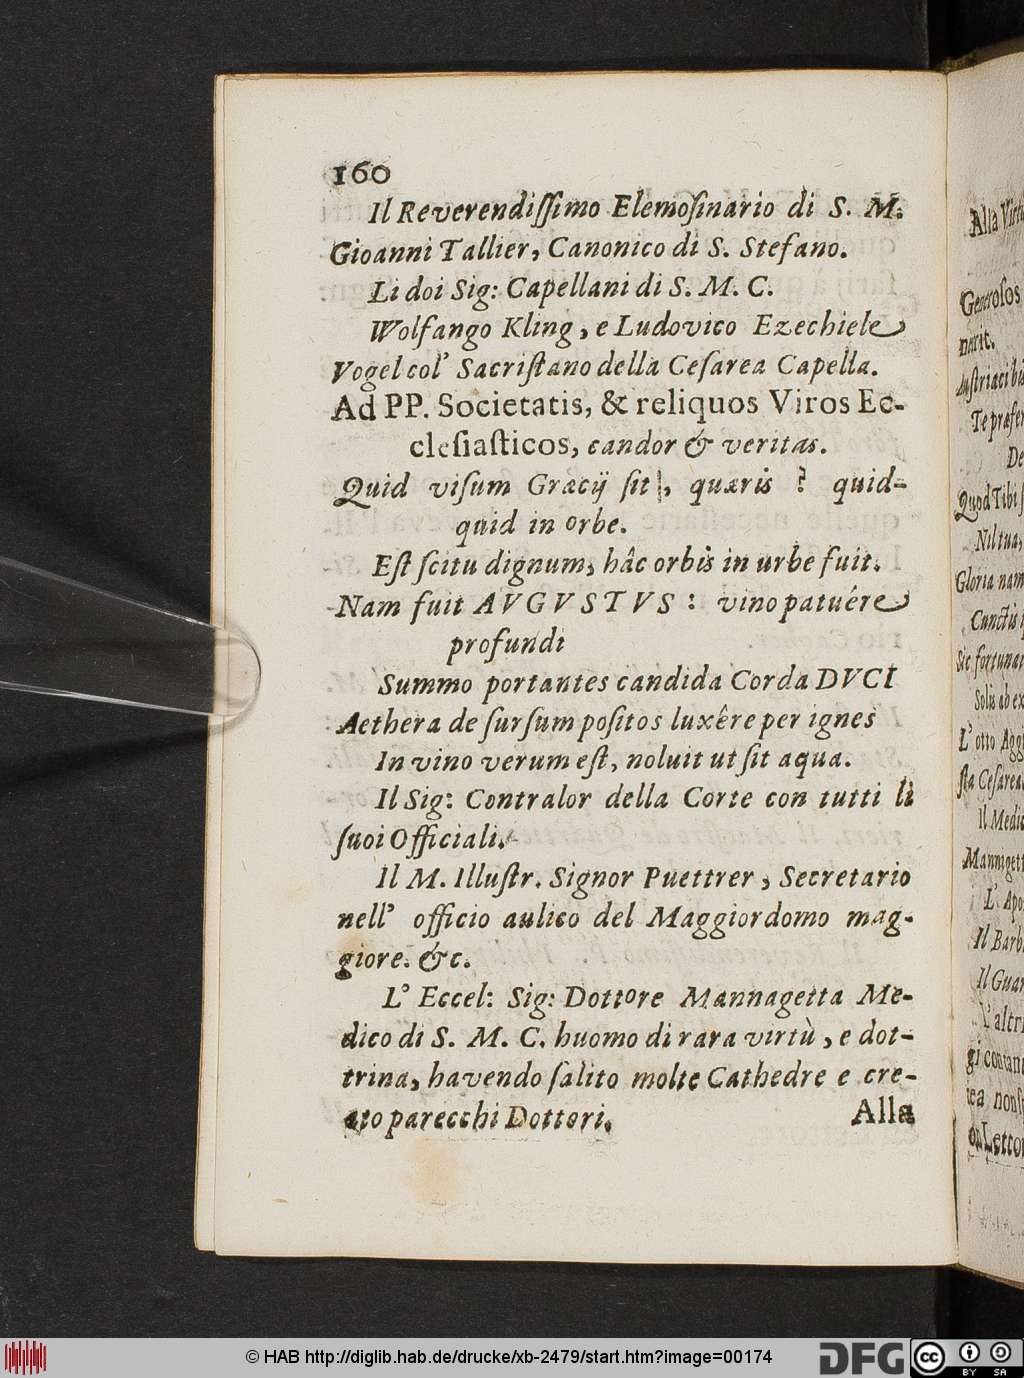 160
Il Reverendiſſimo Elemoſinario di S. M.
Gioanni Tallier, Canonico di S. Stefano.
Li doi Sig: Capellani di S. M. C.
Wolfango Kling, e Ludovico Ezechiele
Vogel col' Sacriſtano della Ceſarea Capella.
Ad PP. Societatis, & reliquos Viros Ec-
cleſiaſticos, candor & veritas.
Quid viſum Græcij ſit, quæris? quid-
quid in orbe.
Eſt ſcitu dignum, hâc orbis in urbe fuit.
Nam fuit AVGVSTVS: vino patuére
profundi
Summo portantes candida Corda DVCI
Aethera de ſurſum poſitos luxêre per ignes
In vino verum eſt, noluit ut ſit aqua.
Il Sig: Contralor della Corte con tutti li
ſuoi Officiali.
Il M. Illuſtr. Signor Puettrer, Secretario
nell' officio aulico del Maggiordomo mag-
giore. &c.
L' Eccel: Sig: Dottore Mannagetta Me-
dico di S. M. C. huomo di rara virtù, e dot-
trina, havendo ſalito molte Cathedre e cre-
ato parecchi Dottori.
Alla
Alla
Generoſos
narit.
Auſtriaci
De
Quod Tibi
Nil tua,
Gloria nam
Cunctis
Sic fortunat
Solis ab ex
L' otto
ſta Ceſarea
Il Medic
Mannigett
L' Apo
Il Barb
Il Guar
L'altri
© HAB http://diglib.hab.de/drucke/xb-2479/start.htm?image=00174
DFG
cc
BY SA